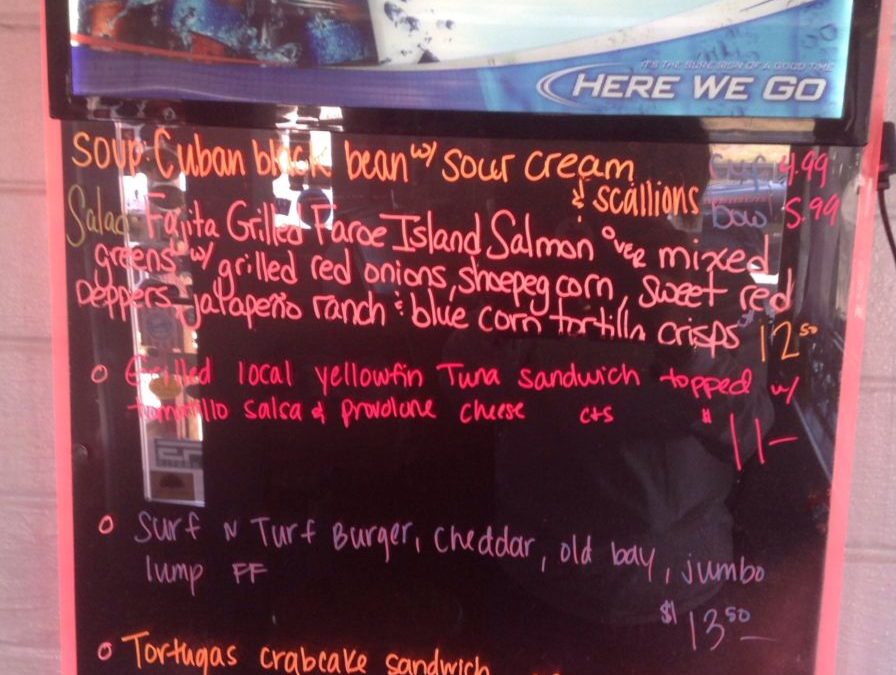 IT'S THE SURE SIGN OF A GOOD TIME
HERE WE GO
Soup: Cuban black bean w/ sour cream Cup 4.99
& scallions Bowl 5.99
Salad: Fajita Grilled Faroe Island Salmon over mixed
greens w/ grilled red onions, shoepeg corn, sweet red
peppers, jalapeño ranch & blue corn tortilla crisps 12.50
Grilled local yellowfin Tuna sandwich topped w/
tomatillo salsa & provolone cheese c+s $11-
Surf N Turf Burger, cheddar, old bay, jumbo
lump FF $13.50
Tortugas crabcake sandwich